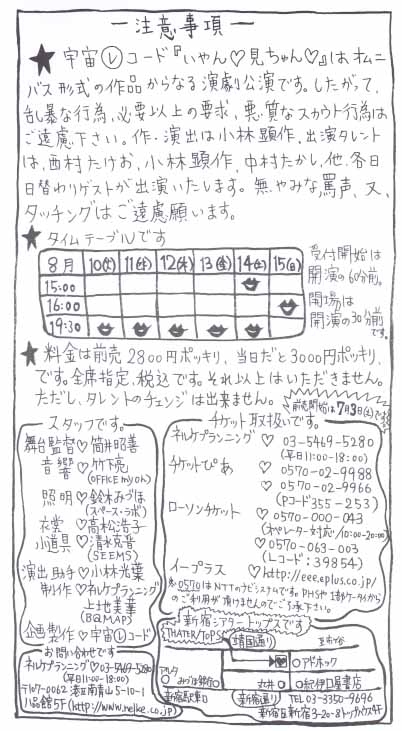 －注意事項－
★宇宙Ⓛコード『いやん♡見ちゃん♡』はオムニ
バス形式の作品からなる演劇公演です。したがって、
乱暴な行為、必要以上の要求、悪質なスカウト行為は
ご遠慮下さい。作・演出は小林顕作、出演タレント
は、西村たけお、小林顕作、中村たかし、他、各日
日替わりゲストが出演いたします。無やみな罵声、又、
タッチングはご遠慮願います。
★タイムテーブルです
8月 10(火) 11(水) 12(木) 13(金) 14(土) 15(日)
15:00
16:00
19:30
受付開始は
開演の60分前。
開場は
開演の30分前
です。
★料金は前売2800円ポッキリ、当日だと3000円ポッキリ、
です。全席指定、税込です。それ以上はいただきません。
ただし、タレントのチェンジは出来ません。
前売開始は7月3日(土)です
スタッフです。
舞台監督♡筒井昭善
音響♡竹下亮
(OFFICE my on)
照明♡鈴木みづほ
(スペース・ラボ)
衣裳♡高松浩子
小道具♡清水克晋
(SEEMS)
演出助手♡小林光葉
制作♡ネルケプランニング
上地美華
(BQMAP)
企画製作♡宇宙Ⓛコード
お問い合わせです
ネルケプランニング♡03-5469-5280
(平日11:00-18:00)
〒107-0062 港区南青山5-10-1
八品館5F(http://www.nelke.co.jp)
チケット取扱いです。
ネルケプランニング
♡03-5469-5280
(平日11:00-18:00)
チケットぴあ
♡0570-02-9988
♡0570-02-9966
(Pコード355-253)
ローソンチケット
♡0570-000-043
(オペレーター対応/10:00-20:00)
♡0570-063-003
(Lコード:39854)
イープラス
♡http://eee.eplus.co.jp/
※0570はNTTのナビシステムです。PHSや1部ケータイから
のご利用が頂けませんのでご了承下さい。
新宿シアタートップスです
THEATER/TOPS
靖国通り
至市ヶ谷
アルタ
○みづほ銀行
○アドホック
丸井
○紀伊國屋書店
新宿駅東口
新宿通り
TEL 03-3350-9696
新宿区新宿3-20-8トップスハウス4F